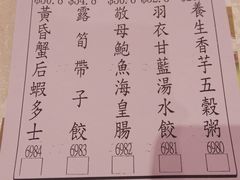 養生香芋五穀粥
6980
羽衣甘藍湯水餃
6981
敬母鮑魚海皇腸
6982
露筍帶子餃
6983
黃昏蟹后蝦多士
6984